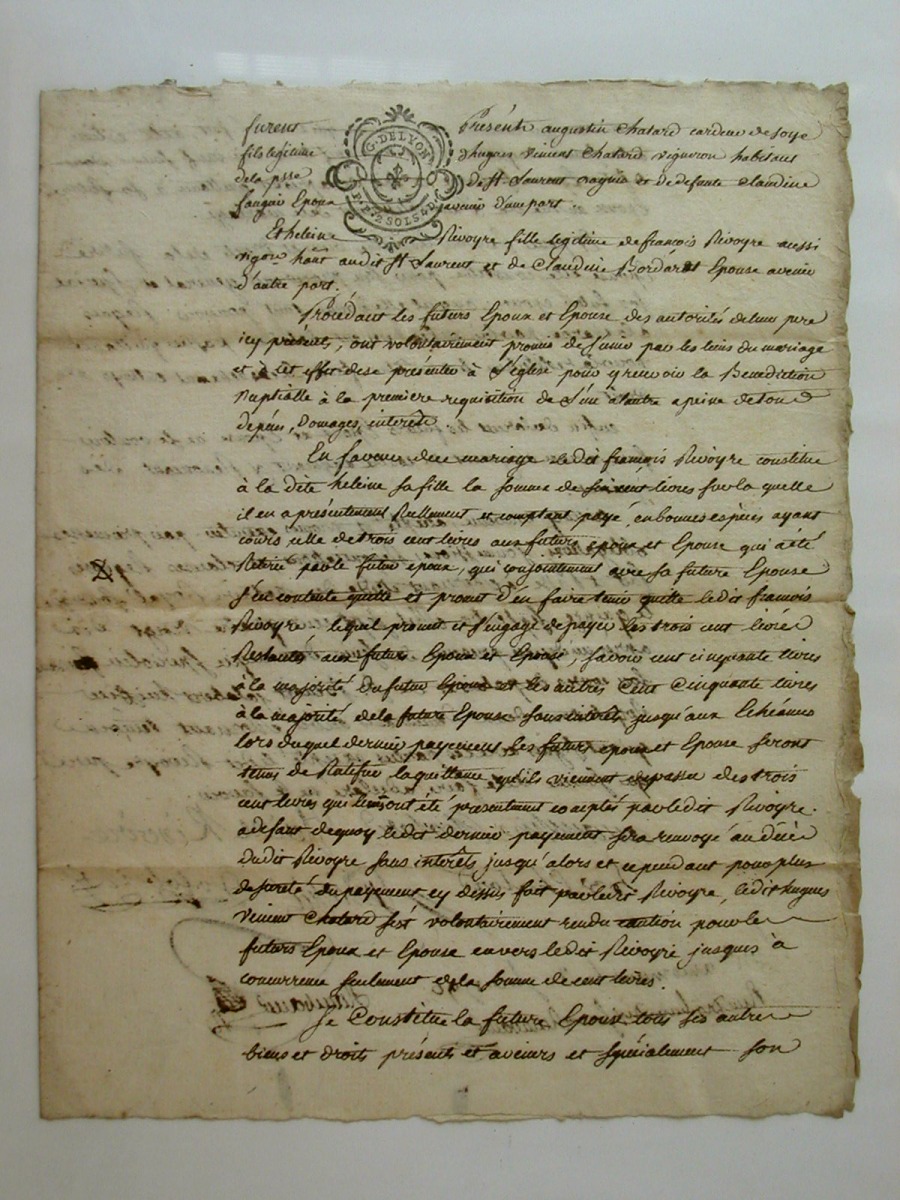 furent Présents augustin Chatard cardeur de soye
fils legitime d'hugues vincent Chatard vigneron habitant
de la psse de St Laurent d'agnis et de defunte Claudine
fanguin Epoux avenir d'une part.
G. DE LYON
2 SOLS 4 D.
Et heleine Rivoyre fille legitime de françois Rivoyre aussi
vigon habnt audit St Laurent et de Claudine Bordarat Epouse avenir
d'autre part.
Procédant les futurs Epoux et Epouse des autorités de leur pere
icy présents, ont volontairement promis de s'unir par les liens du mariage
et à cet effet de se présenter à l'église pour y recevoir la Benediction
Nuptialle à la premiere requisition de l'un à l'autre a peine de tous
depens, Domages, interets.
En faveur du mariage ledit françois Rivoyre constitue
à la dite héleine sa fille la somme de six cent livres sur la quelle
il en a présentement Reellement et comptant payé, en bonnes espèces ayant
cours celle de trois cent livres aux futurs epoux et Epouse qui a été
Retirée par le futur epoux, qui conjointement avec sa future Epouse
s'en contente quitte et promet d'en faire tenir quitte ledit françois
Rivoyre lequel promet et s'engage de payer les trois cent livres
Restantes aux futurs Epoux et Epouse, savoir cent cinquante livres
à la majorité du futur Epoux et les autres Cent Cinquante livres
à la majorité de la future Epouse sans interets jusqu'aux Echéances
lors duquel dernier payement les futurs epoux et Epouse seront
tenus de Ratifier la quittance qu'ils viennent de passer des trois
cent livres qui leurs ont été présentement comptés par ledit Rivoyre.
a defaut de quoy ledit dernier payement sera renvoyé au décès
dudit Rivoyre sans interêts jusqu'alors et cependant pour plus
de sureté du payement cy dessus fait par ledit Rivoyre, ledit hugues
Vincent Chatard s'est volontairement rendu caution pour les
futurs Epoux et Epouse envers ledit Rivoyre jusques à
concurrence seulement de la somme de cent livres.
Se Constitue la future Epouse tous ses autres
biens et droits présents et avenirs et spécialement son